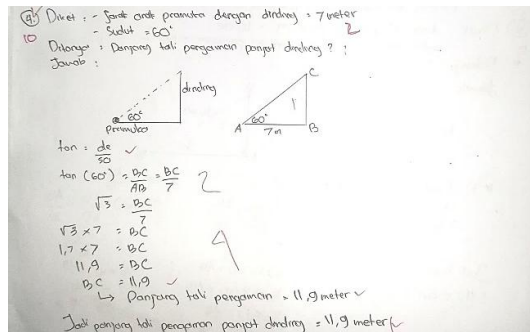 4. Diket : - Jarak anak pramuka dengan dinding = 7 meter
- Sudut = 60° 2
10
Ditanya : Panjang tali pengaman panjat dinding ? :
Jawab :
dinding
60°
Pramuka
C
1
60°
A 7m B
tan = de/sa
tan (60°) = BC/AB = BC/7 2
√3 = BC/7
√3 × 7 = BC
1,7 × 7 = BC
11,9 = BC 4
BC = 11,9
↳ Panjang tali pengaman = 11,9 meter
Jadi panjang tali pengaman panjat dinding = 11,9 meter 1